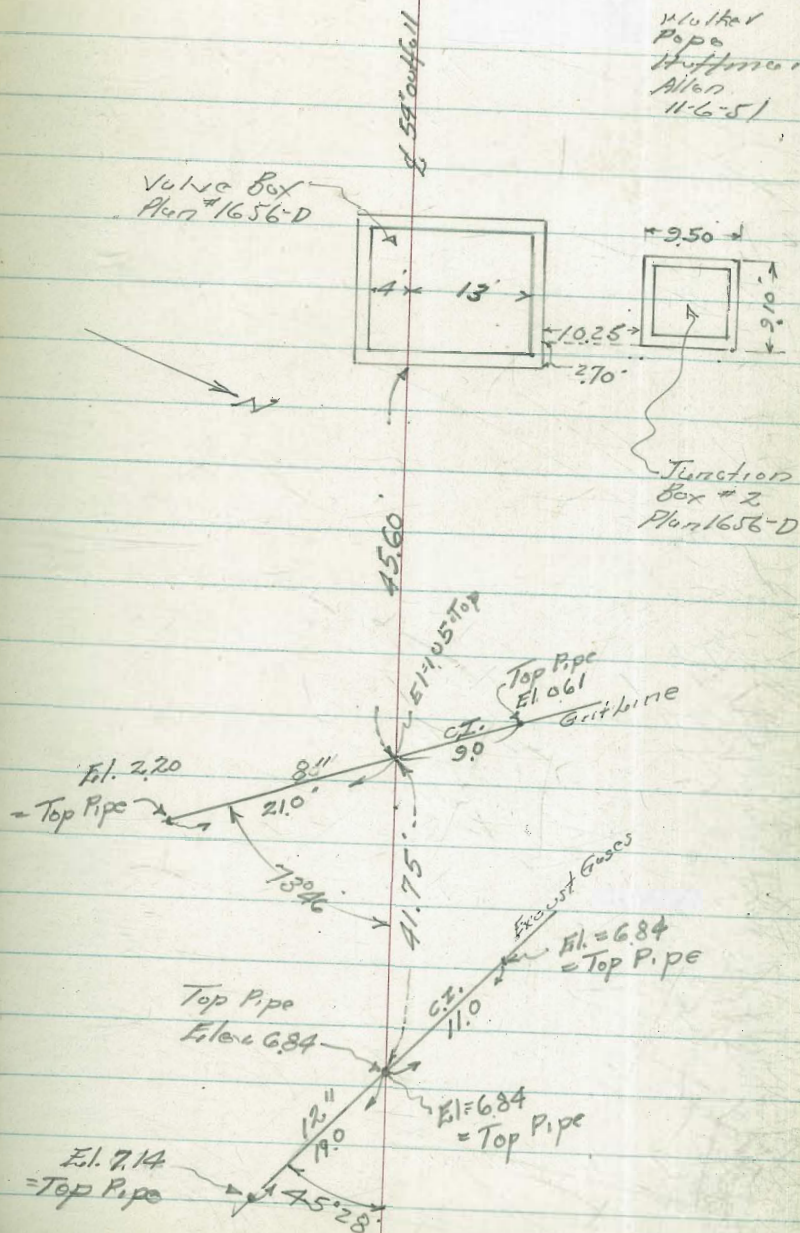 Walker
Pope
Huffman
Allen
11-6-51
℄ 54" outfall
Valve Box
Plan #1656-D
9.50
4'
13'
9.10
10.25
2.70
N
Junction
Box # 2
Plan 1656-D
45.60'
El=1.05=Top
Top Pipe
El. 0.61
Grit Line
C.I.
9.0
El. 2.20
= Top Pipe
8"
21.0'
73°46'
41.75'
Exaust Gases
El. = 6.84
= Top Pipe
C.I.
11.0
Top Pipe
Elev 6.84
El=6.84
= Top Pipe
12"
19.0
El. 7.14
=Top Pipe
45°28'